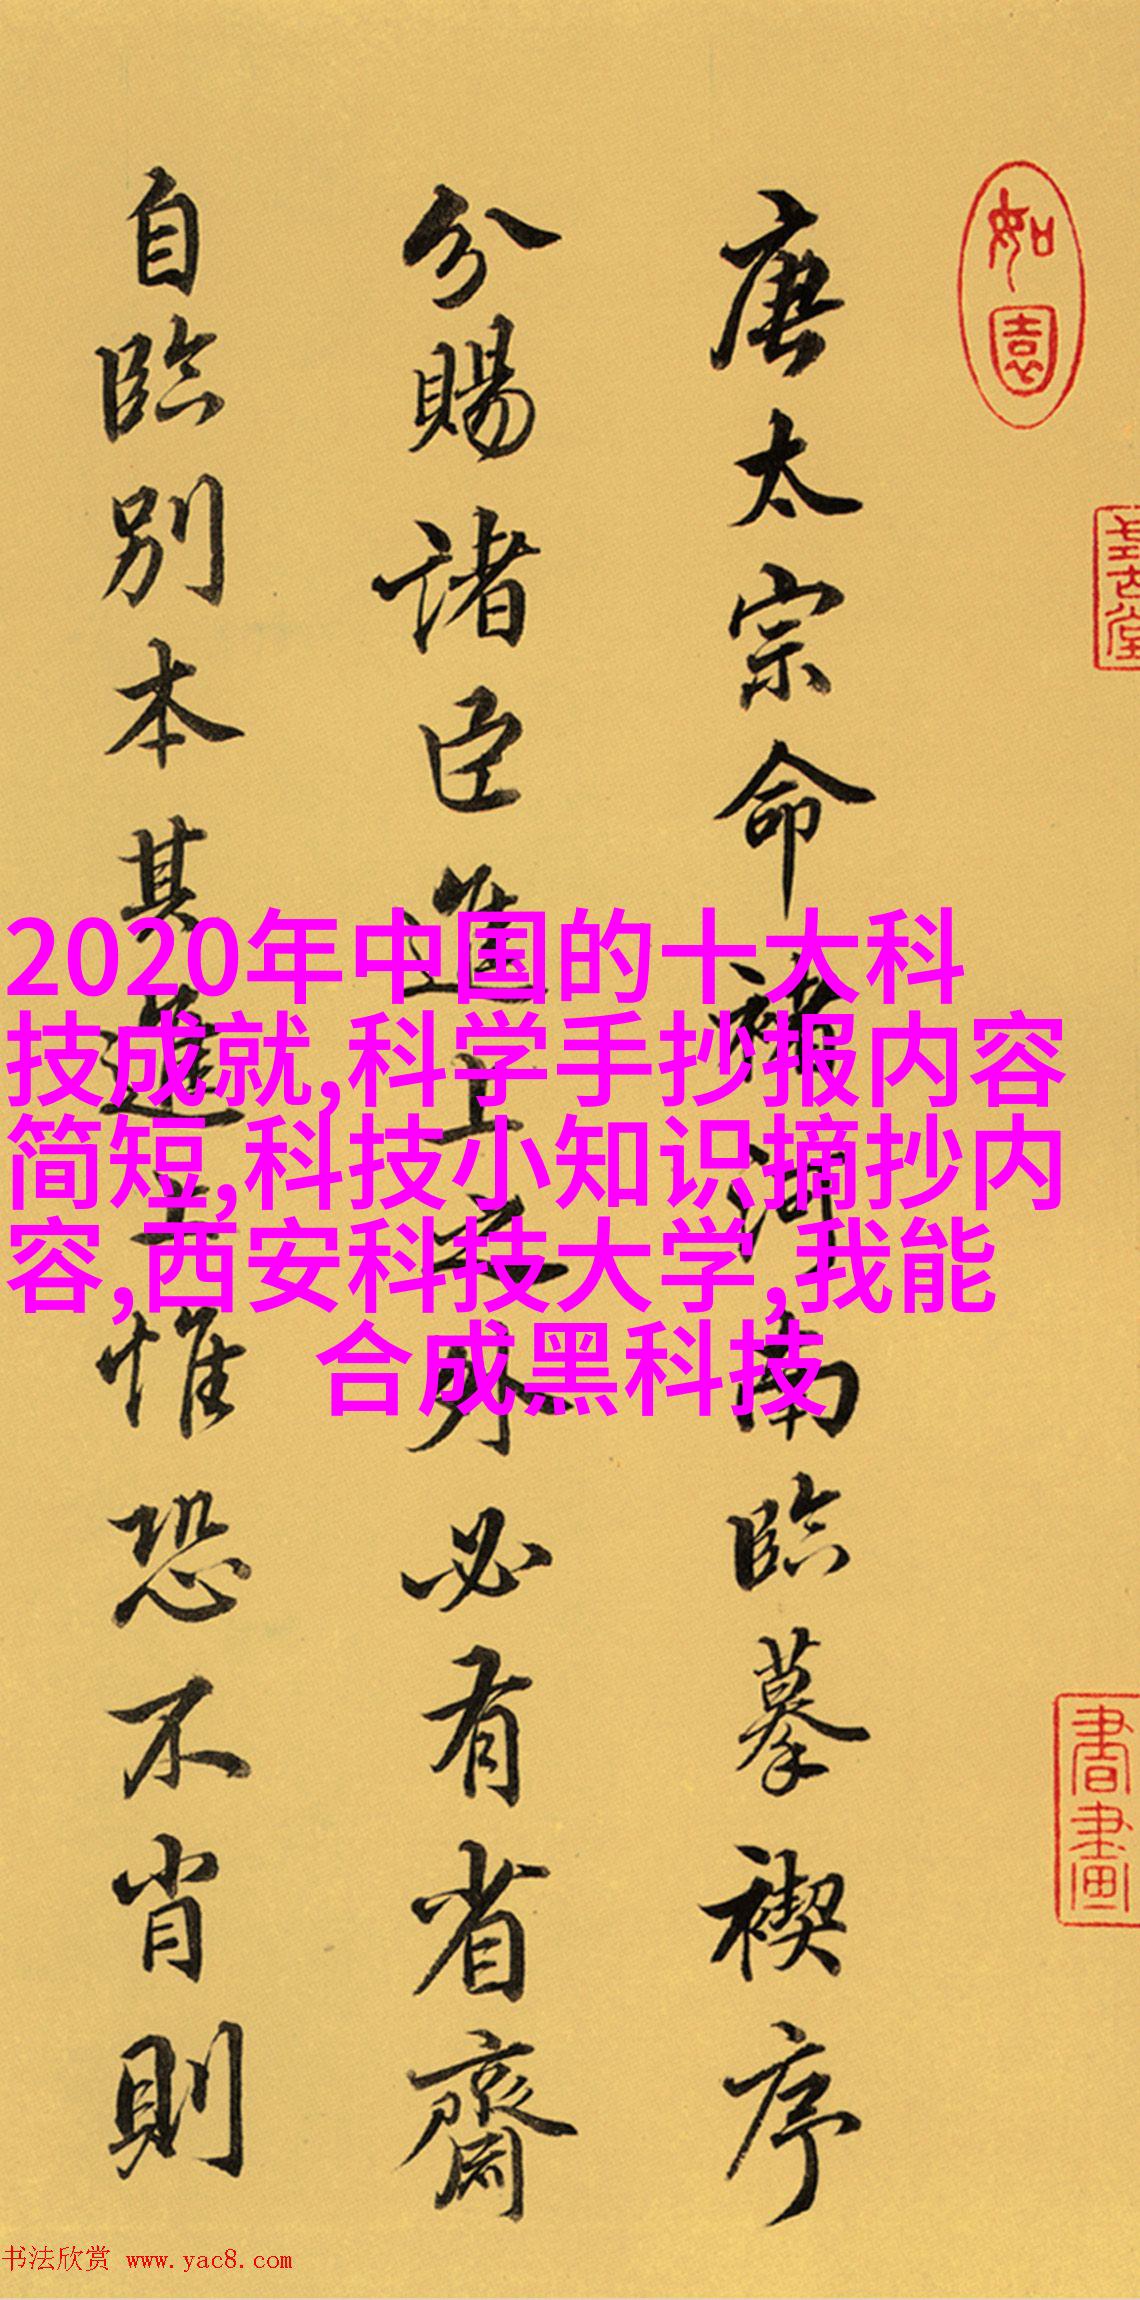 如園
書畫
唐太宗命褚河南臨摹禊序
分賜諸臣進上之外必有省齋
自臨別本其進上惟恐不肖則
2020年中国的十大科
技成就,科学手抄报内容
简短,科技小知识摘抄内
容,西安科技大学,我能
合成黑科技
书法欣赏 www.yac8.com